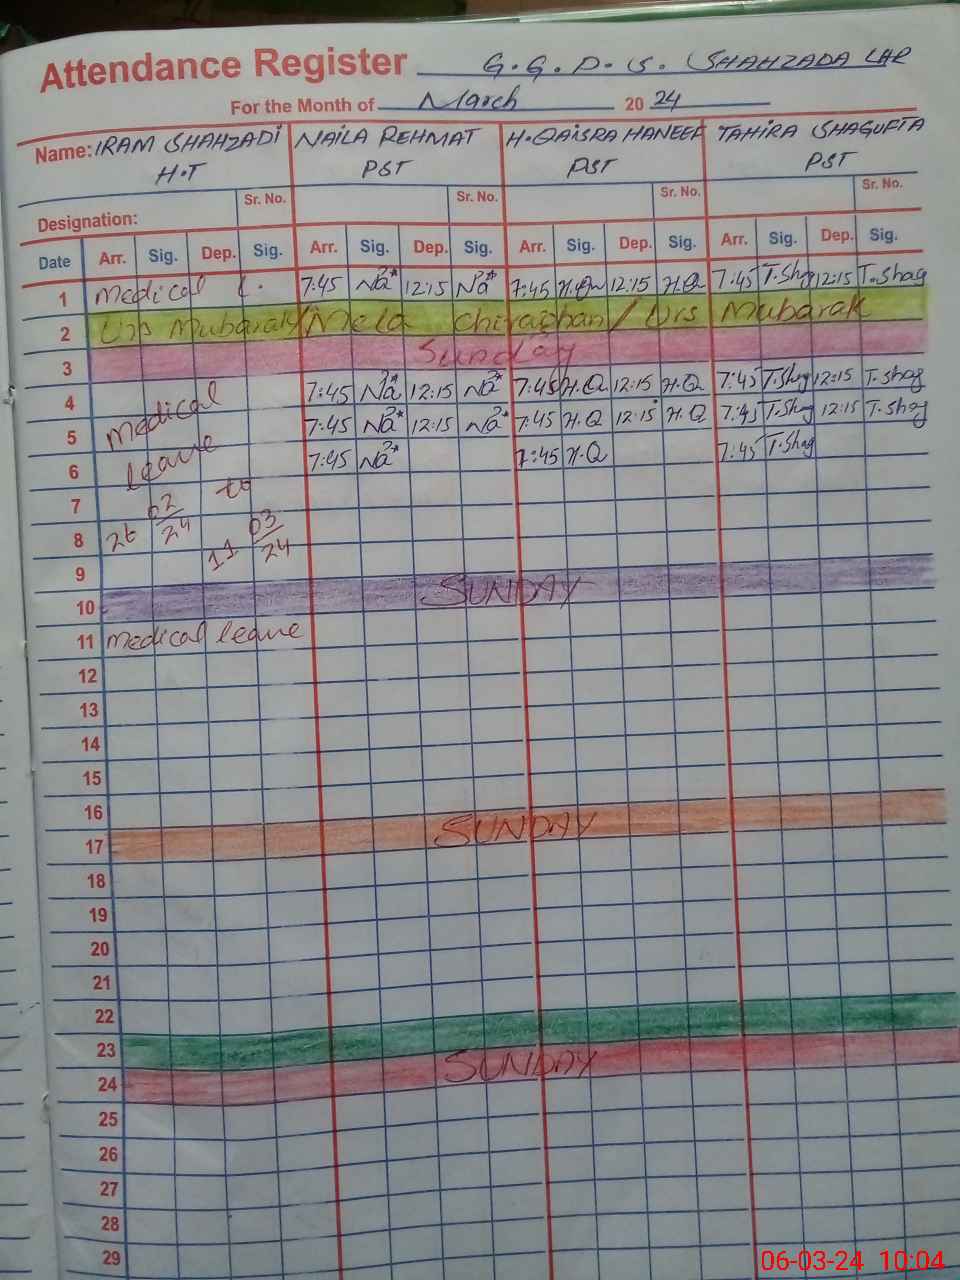 Attendance Register G.G.P.S. SHAHZADA LHR
For the Month of March 2024
Name: IRAM SHAHZADI NAILA REHMAT H.QAISRA HANEEF TAHIRA SHAGUFTA
H.T PST PST PST
Designation: Sr. No. Sr. No. Sr. No. Sr. No.
Date Arr. Sig. Dep. Sig. Arr. Sig. Dep. Sig. Arr. Sig. Dep. Sig. Arr. Sig. Dep. Sig.
1 Medical L. 7:45 Na 12:15 Na 7:45 H.Q 12:15 H.Q 7:45 T.Shag 12:15 T.Shag
2 Urs Mubarak/Mela Chiraghan/Urs Mubarak
3 Sunday
4 Medical 7:45 Na 12:15 Na 7:45 H.Q 12:15 H.Q 7:45 T.Shag 12:15 T.Shag
5 7:45 Na 12:15 Na 7:45 H.Q 12:15 H.Q 7:45 T.Shag 12:15 T.Shag
6 leave 7:45 Na 7:45 H.Q 7:45 T.Shag
7 to
8 26 02/24 11 03/24
9
10 SUNDAY
11 Medical leave
12
13
14
15
16
17 SUNDAY
18
19
20
21
22
23
24 SUNDAY
25
26
27
28
29
06-03-24 10:04